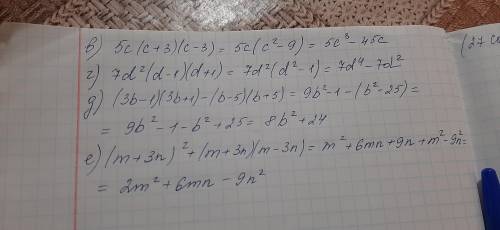 в) 5c(c+3)(c-3) = 5c(c²-9) = 5c³-45c
г) 7d²(d-1)(d+1) = 7d²(d²-1) = 7d⁴-7d²
д) (3b-1)(3b+1)-(b-5)(b+5) = 9b²-1-(b²-25) =
= 9b²-1-b²+25 = 8b²+24
е) (m+3n)²+(m+3n)(m-3n) = m²+6mn+9n+m²-9n²=
= 2m²+6mn-9n²